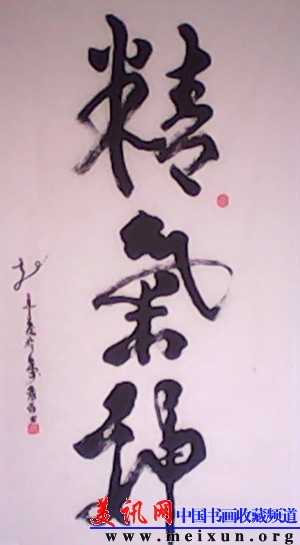 精
氣
神
美讯网 中国书画收藏频道
www.meixun.org